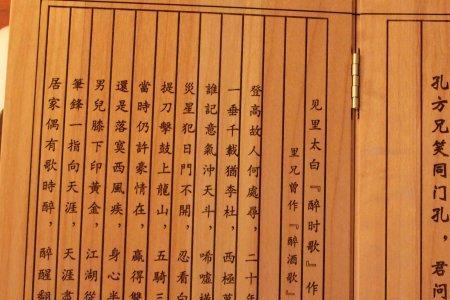 孔方兄笑同门孔，君问
见里太白『醉时歌』作
里兄曾作『醉酒歌』
登高故人何處尋，二十年
一垂千載猶李杜，西極萬
誰記意氣沖天斗，唏噓
災星犯日門不開，忍看白
提刀擊鼓上龍山，五騎三
當時仍許豪情在，贏得雙
還是落寞西風疾，身心半
男兒膝下印黃金，江湖從
筆鋒一指向天涯，天涯盡
居家偶有歌時醉，醉醒翻